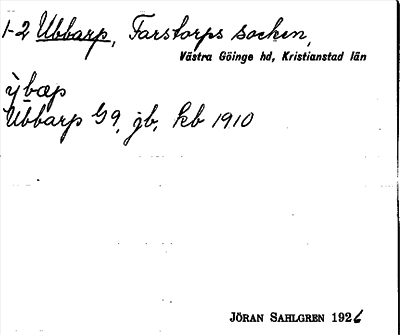 1-2 Ubbarp, Farstorps socken,
Västra Göinge hd, Kristianstad län
ỳbæp
Ubbarp G9, jb, kb 1910
JÖRAN SAHLGREN 1926